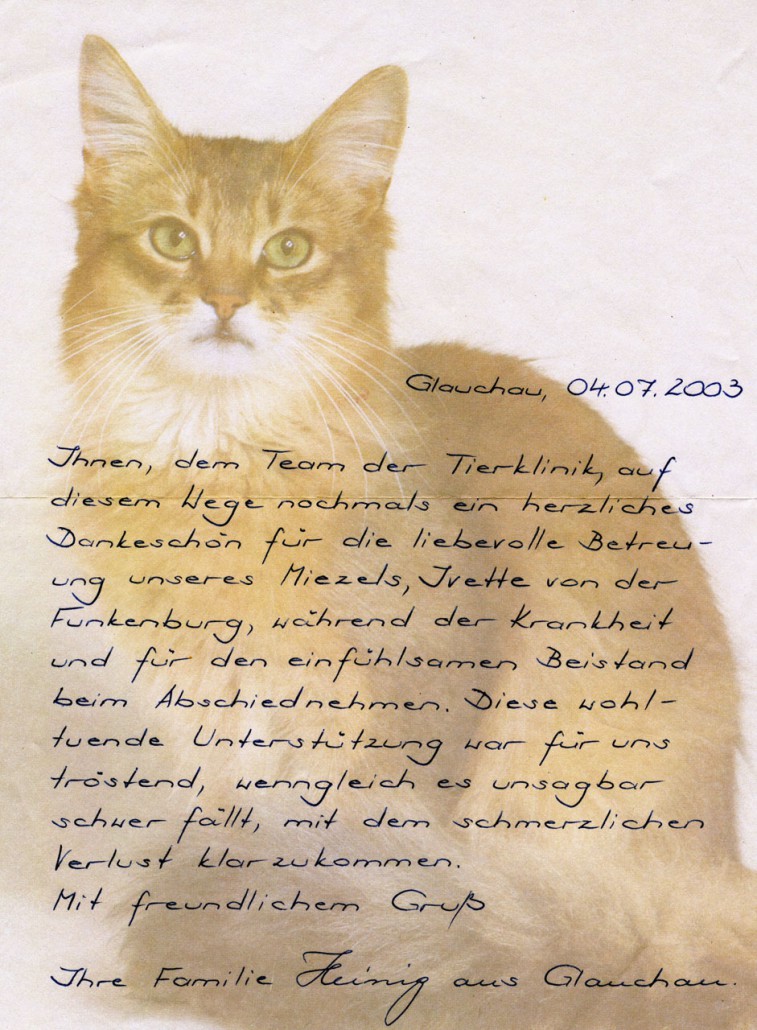 Glauchau, 04.07.2003
Ihnen, dem Team der Tierklinik, auf
diesem Wege nochmals ein herzliches
Dankeschön für die liebevolle Betreu-
ung unseres Miezels, Ivette von der
Funkenburg, während der Krankheit
und für den einfühlsamen Beistand
beim Abschiednehmen. Diese wohl-
tuende Unterstützung war für uns
tröstend, wenngleich es unsagbar
schwer fällt, mit dem schmerzlichen
Verlust klarzukommen.
Mit freundlichem Gruß
Ihre Familie Heinig aus Glauchau.